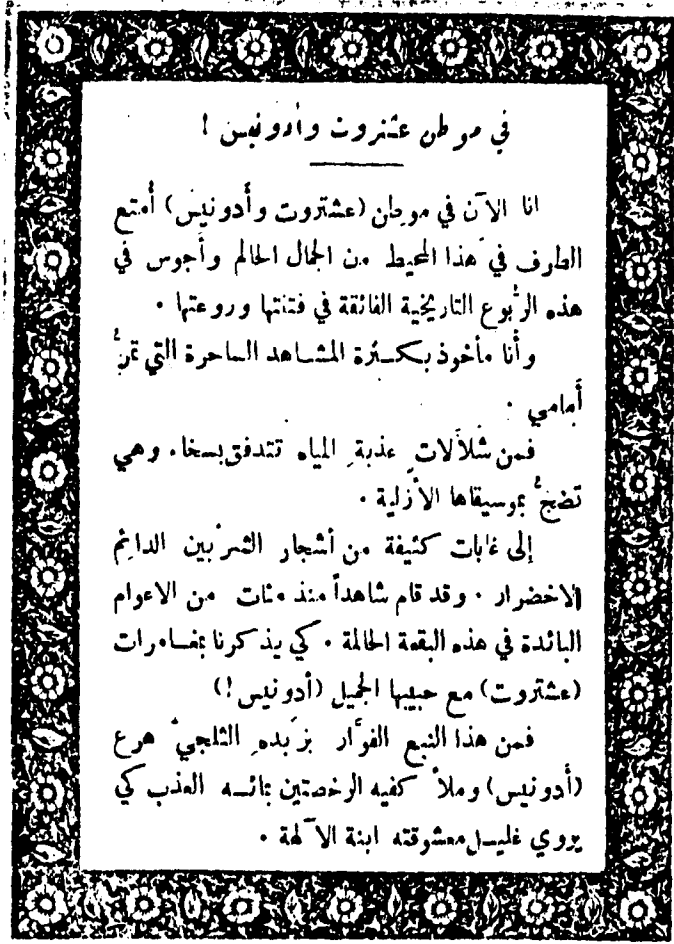 في موطن عشتروت وأدونيس !
انا الآن في موطن (عشتروت وأدونيس) أُمتع
الطرف في هذا المحيط من الجمال الحالم وأَجوس في
هذه الرُّبوع التاريخية الفائقة في فتنتها وروعتها .
وأَنا مأخوذ بكثرة المشاهد الساحرة التي تمرُّ
أَمامي .
فمن شلاَلات عذبةِ المياه تتدفق بسخاء وهي
تضجُّ بموسيقاها الأزلية .
إلى غابات كثيفة من أشجار الشربين الدائم
الاخضرار . وقد قام شاهداً منذ مئات من الاعوام
البائدة في هذه البقعة الحالمة . كي يذكرنا بمغامرات
(عشتروت) مع حبيبها الجميل (أدونيس !)
فمن هذا النبع الفوَّار بزَبدهِ الثلجيّ هرع
(أدونيس) وملأ كفيه الرخصتين بمائه العذب كي
يروي غليل معشوقته ابنة الآلهة .